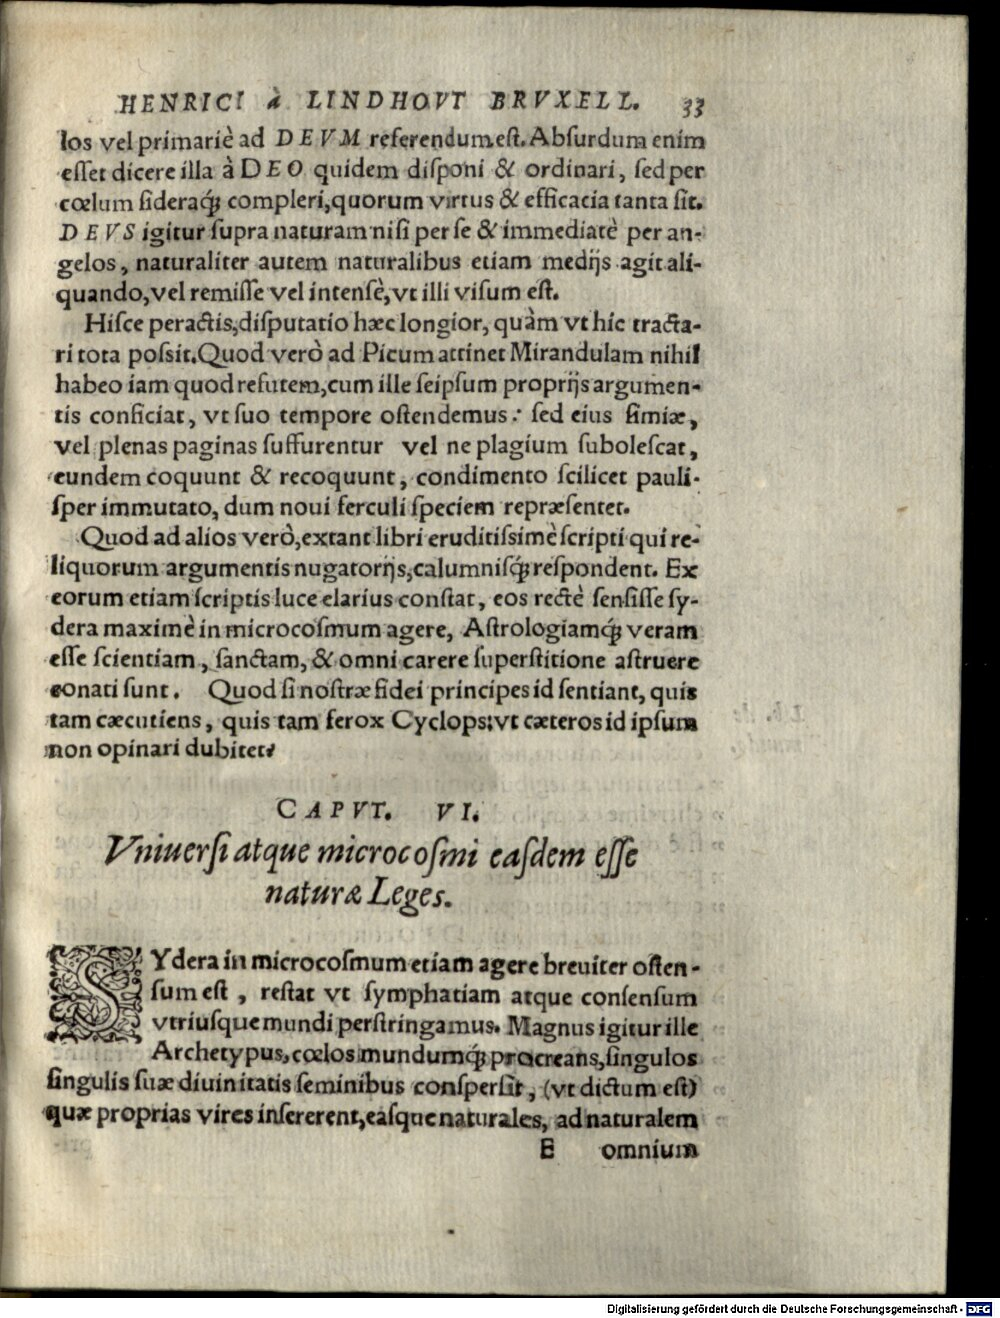 HENRICI à LINDHOVT BRVXELL. 33
los vel primariè ad DEVM referendum est. Absurdum enim
esset dicere illa à DEO quidem disponi & ordinari, sed per
cœlum sideraq́; compleri, quorum virtus & efficacia tanta sit.
DEVS igitur supra naturam nisi per se & immediatè per an-
gelos, naturaliter autem naturalibus etiam medijs agit ali-
quando, vel remisse vel intensè, vt illi visum est.
Hisce peractis, disputatio hæc longior, quàm vt hic tracta-
ri tota possit. Quod verò ad Picum attinet Mirandulam nihil
habeo iam quod refutem, cum ille seipsum proprijs argumen-
tis conficiat, vt suo tempore ostendemus: sed eius simiæ,
vel plenas paginas suffurentur vel ne plagium subolescat,
eundem coquunt & recoquunt, condimento scilicet pauli-
sper immutato, dum noui ferculi speciem repræsentet.
Quod ad alios verò, extant libri eruditissimè scripti qui re-
liquorum argumentis nugatorijs, calumnisq́; respondent. Ex
eorum etiam scriptis luce clarius constat, eos rectè sensisse sy-
dera maximè in microcosmum agere, Astrologiamq́; veram
esse scientiam, sanctam, & omni carere superstitione astruere
conati sunt. Quod si nostræ fidei principes id sentiant, quis
tam cæcutiens, quis tam ferox Cyclops: vt cæteros id ipsum
non opinari dubitet?
CAPVT. VI.
Vniuersi atque microcosmi easdem esse
naturæ Leges.
SYdera in microcosmum etiam agere breuiter osten-
sum est, restat vt symphatiam atque consensum
vtriusque mundi perstringamus. Magnus igitur ille
Archetypus, cœlos mundumq́; procreans, singulos
singulis suæ diuinitatis seminibus conspersit, (vt dictum est)
quæ proprias vires insererent, easque naturales, ad naturalem
E omnium
Digitalisierung gefördert durch die Deutsche Forschungsgemeinschaft - DFG